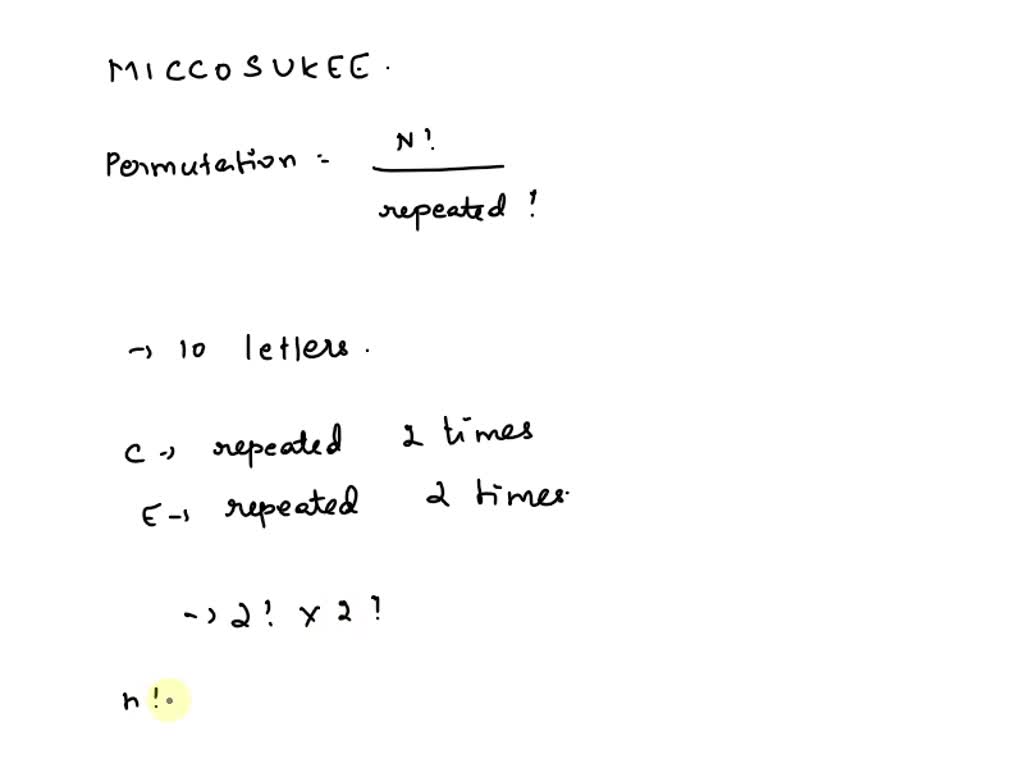 MICCOSUKEE.
Permutation = N! / repeated !
→ 10 letters.
C → repeated 2 times
E → repeated 2 times.
→ 2! x 2!
n!